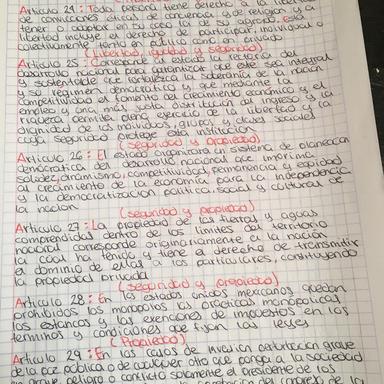 Articulo 24: Toda persona tiene derecho a la libertad
de convicciones éticas, de conciencia y de religion y a
tener o adoptar en su caso la de su agrado. Esta
libertad incluye el derecho de participar, individual o
colectivamente, tanto en publico como en privado
(libertad, igualdad y seguridad)
Articulo 25: Corresponde al estado la rectoria del
desarrollo nacional para garantizar que este sea integral
y sustentable, que fortalezca la soberania de la nacion
y su regimen democratico y que mediante la
competitividad el fomento del crecimiento economico y el
empleo y una más justa distribucion del ingreso y la
riqueza permita pleno ejercicio de la libertad y la
dignidad de los individuos, grupos y clases sociales
cuya seguridad protege esta institucion
(seguridad y propiedad)
Articulo 26: El estado organizara un sistema de planeacion
democratica del desarrollo nacional que imprima
solidez, dinamismo, competitividad, permanencia y equidad
al crecimiento de la economia para la independencia
y la democratizacion politica, social y cultural de
la nacion
(seguridad y propiedad)
Articulo 27: La propiedad de las tierras y aguas
comprendidas dentro de los limites del territorio
nacional corresponde originariamente a la nacion
la cual ha tenido y tiene el derecho de transmitir
el dominio de ellas a los particulares, constituyendo
la propiedad privada
(seguridad y propiedad)
Articulo 28: En los estados unidos mexicanos quedan
prohibidos los monopolios las practicas monopolicas
los estancos y las exenciones de impuestos en los
terminos y condiciones que fijan las leyes
(Propiedad)
Articulo 29: En los casos de invacion perturbacion grave
de la paz publica o de cualquier otro que ponga a la sociedad
en grave peligro o conflicto solamente el presidente de los